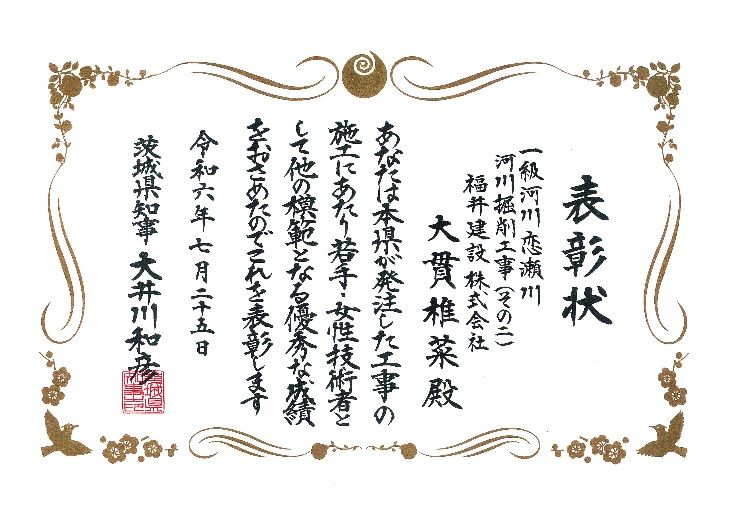 表彰状
一級河川恋瀬川
河川掘削工事(その二)
福井建設株式会社
大貫椎菜殿
あなたは本県が発注した工事の
施工にあたり若手・女性技術者と
して他の模範となる優秀な成績
をおさめたのでこれを表彰します
令和六年七月二十五日
茨城県知事 大井川和彦